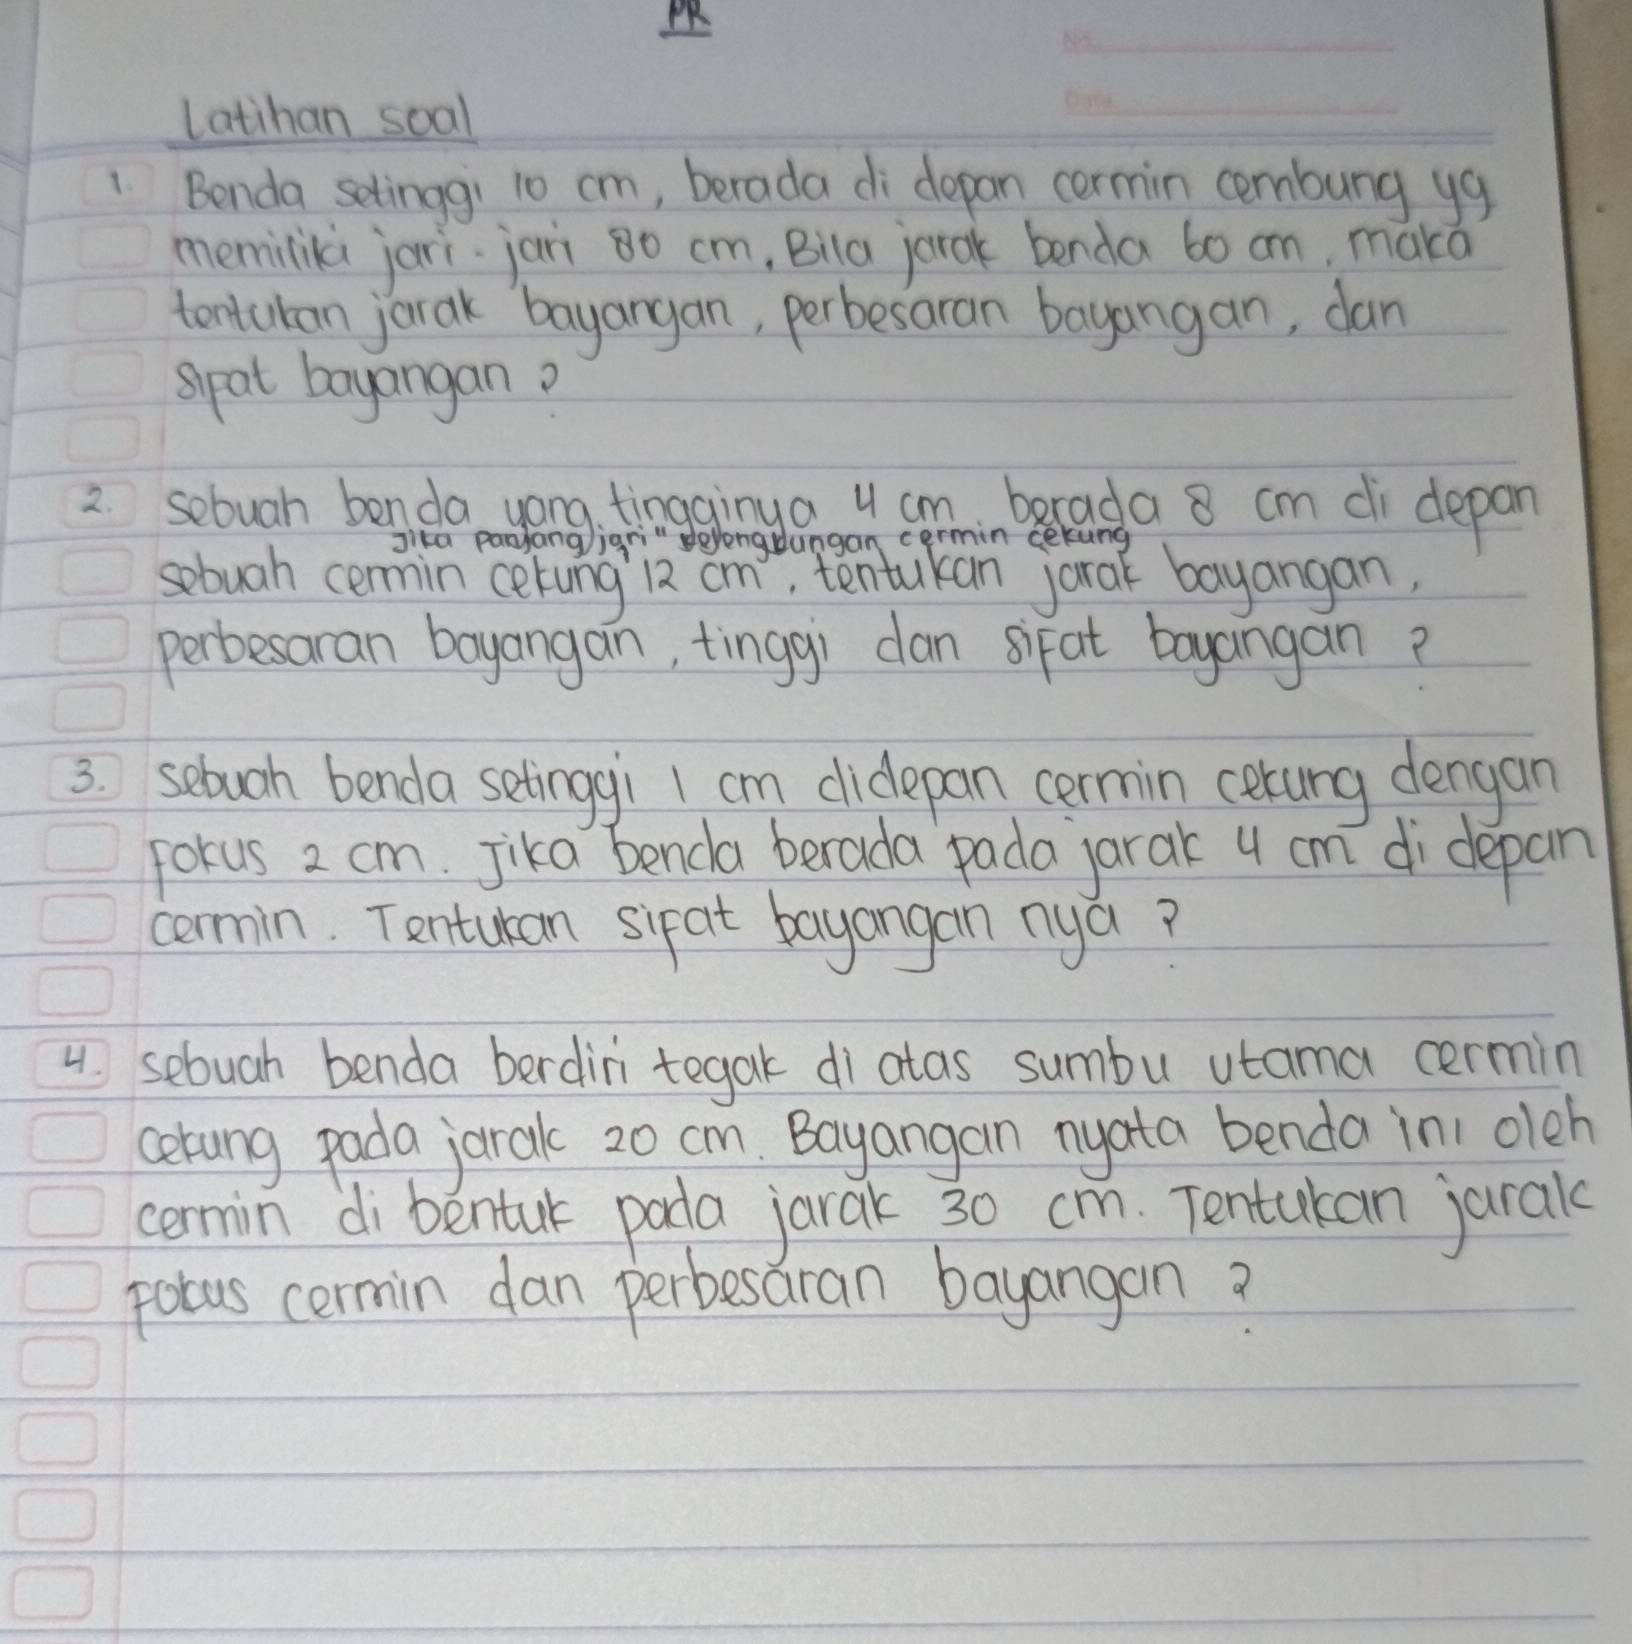 PR
No.
Date
Latihan soal
1. Benda setinggi 10 cm, berada di depan cermin cembung yg
memiliki jari-jari 80 cm. Bila jarak benda 60 cm, maka
tentukan jarak bayangan, perbesaran bayangan, dan
sipat bayangan?
2. sebuah benda yang tingginya 4 cm berada 8 cm di depan
Jika panjang jari" cermin cekung
sebuah cermin cekung 12 cm, tentukan jarak bayangan,
perbesaran bayangan, tinggi dan sifat bayangan?
3. sebuah benda setinggi 1 cm didepan cermin cekung dengan
fokus 2 cm. Jika benda berada pada jarak 4 cm di depan
cermin. Tentukan sifat bayangan nya?
4. sebuah benda berdiri tegak di atas sumbu utama cermin
cekung pada jarak 20 cm. Bayangan nyata benda ini oleh
cermin di bentuk pada jarak 30 cm. Tentukan jarak
fokus cermin dan perbesaran bayangan?